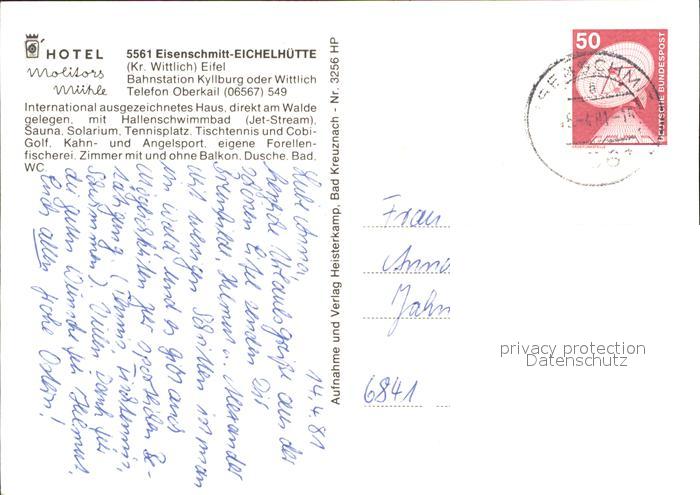 HOTEL
Molitors
Mühle
5561 Eisenschmitt-EICHELHÜTTE
(Kr. Wittlich) Eifel
Bahnstation Kyllburg oder Wittlich
Telefon Oberkail (06567) 549
International ausgezeichnetes Haus, direkt am Walde
gelegen, mit Hallenschwimmbad (Jet-Stream),
Sauna, Solarium, Tennisplatz, Tischtennis und Cobi-
Golf, Kahn- und Angelsport, eigene Forellen-
fischerei. Zimmer mit und ohne Balkon, Dusche, Bad,
WC
14.4.81
Liebe Anna,
herzliche Urlaubsgrüße aus der
schönen Eifel senden Dir
Helmut u. Alexander
Mit wenigen Schritten ist man
im Wald und es gibt auch
Möglichkeiten zur sportlichen Be-
tätigung. (Tennis, Tischtennis,
Schwimmen). Vielen Dank für
die guten Wünsche für Helmut.
Euch allen frohe Ostern!
Aufnahme und Verlag Heisterkamp, Bad Kreuznach - Nr. 3256 HP
50
DEUTSCHE BUNDESPOST
Frau
Anna
Jahn
6841
privacy protection
Datenschutz